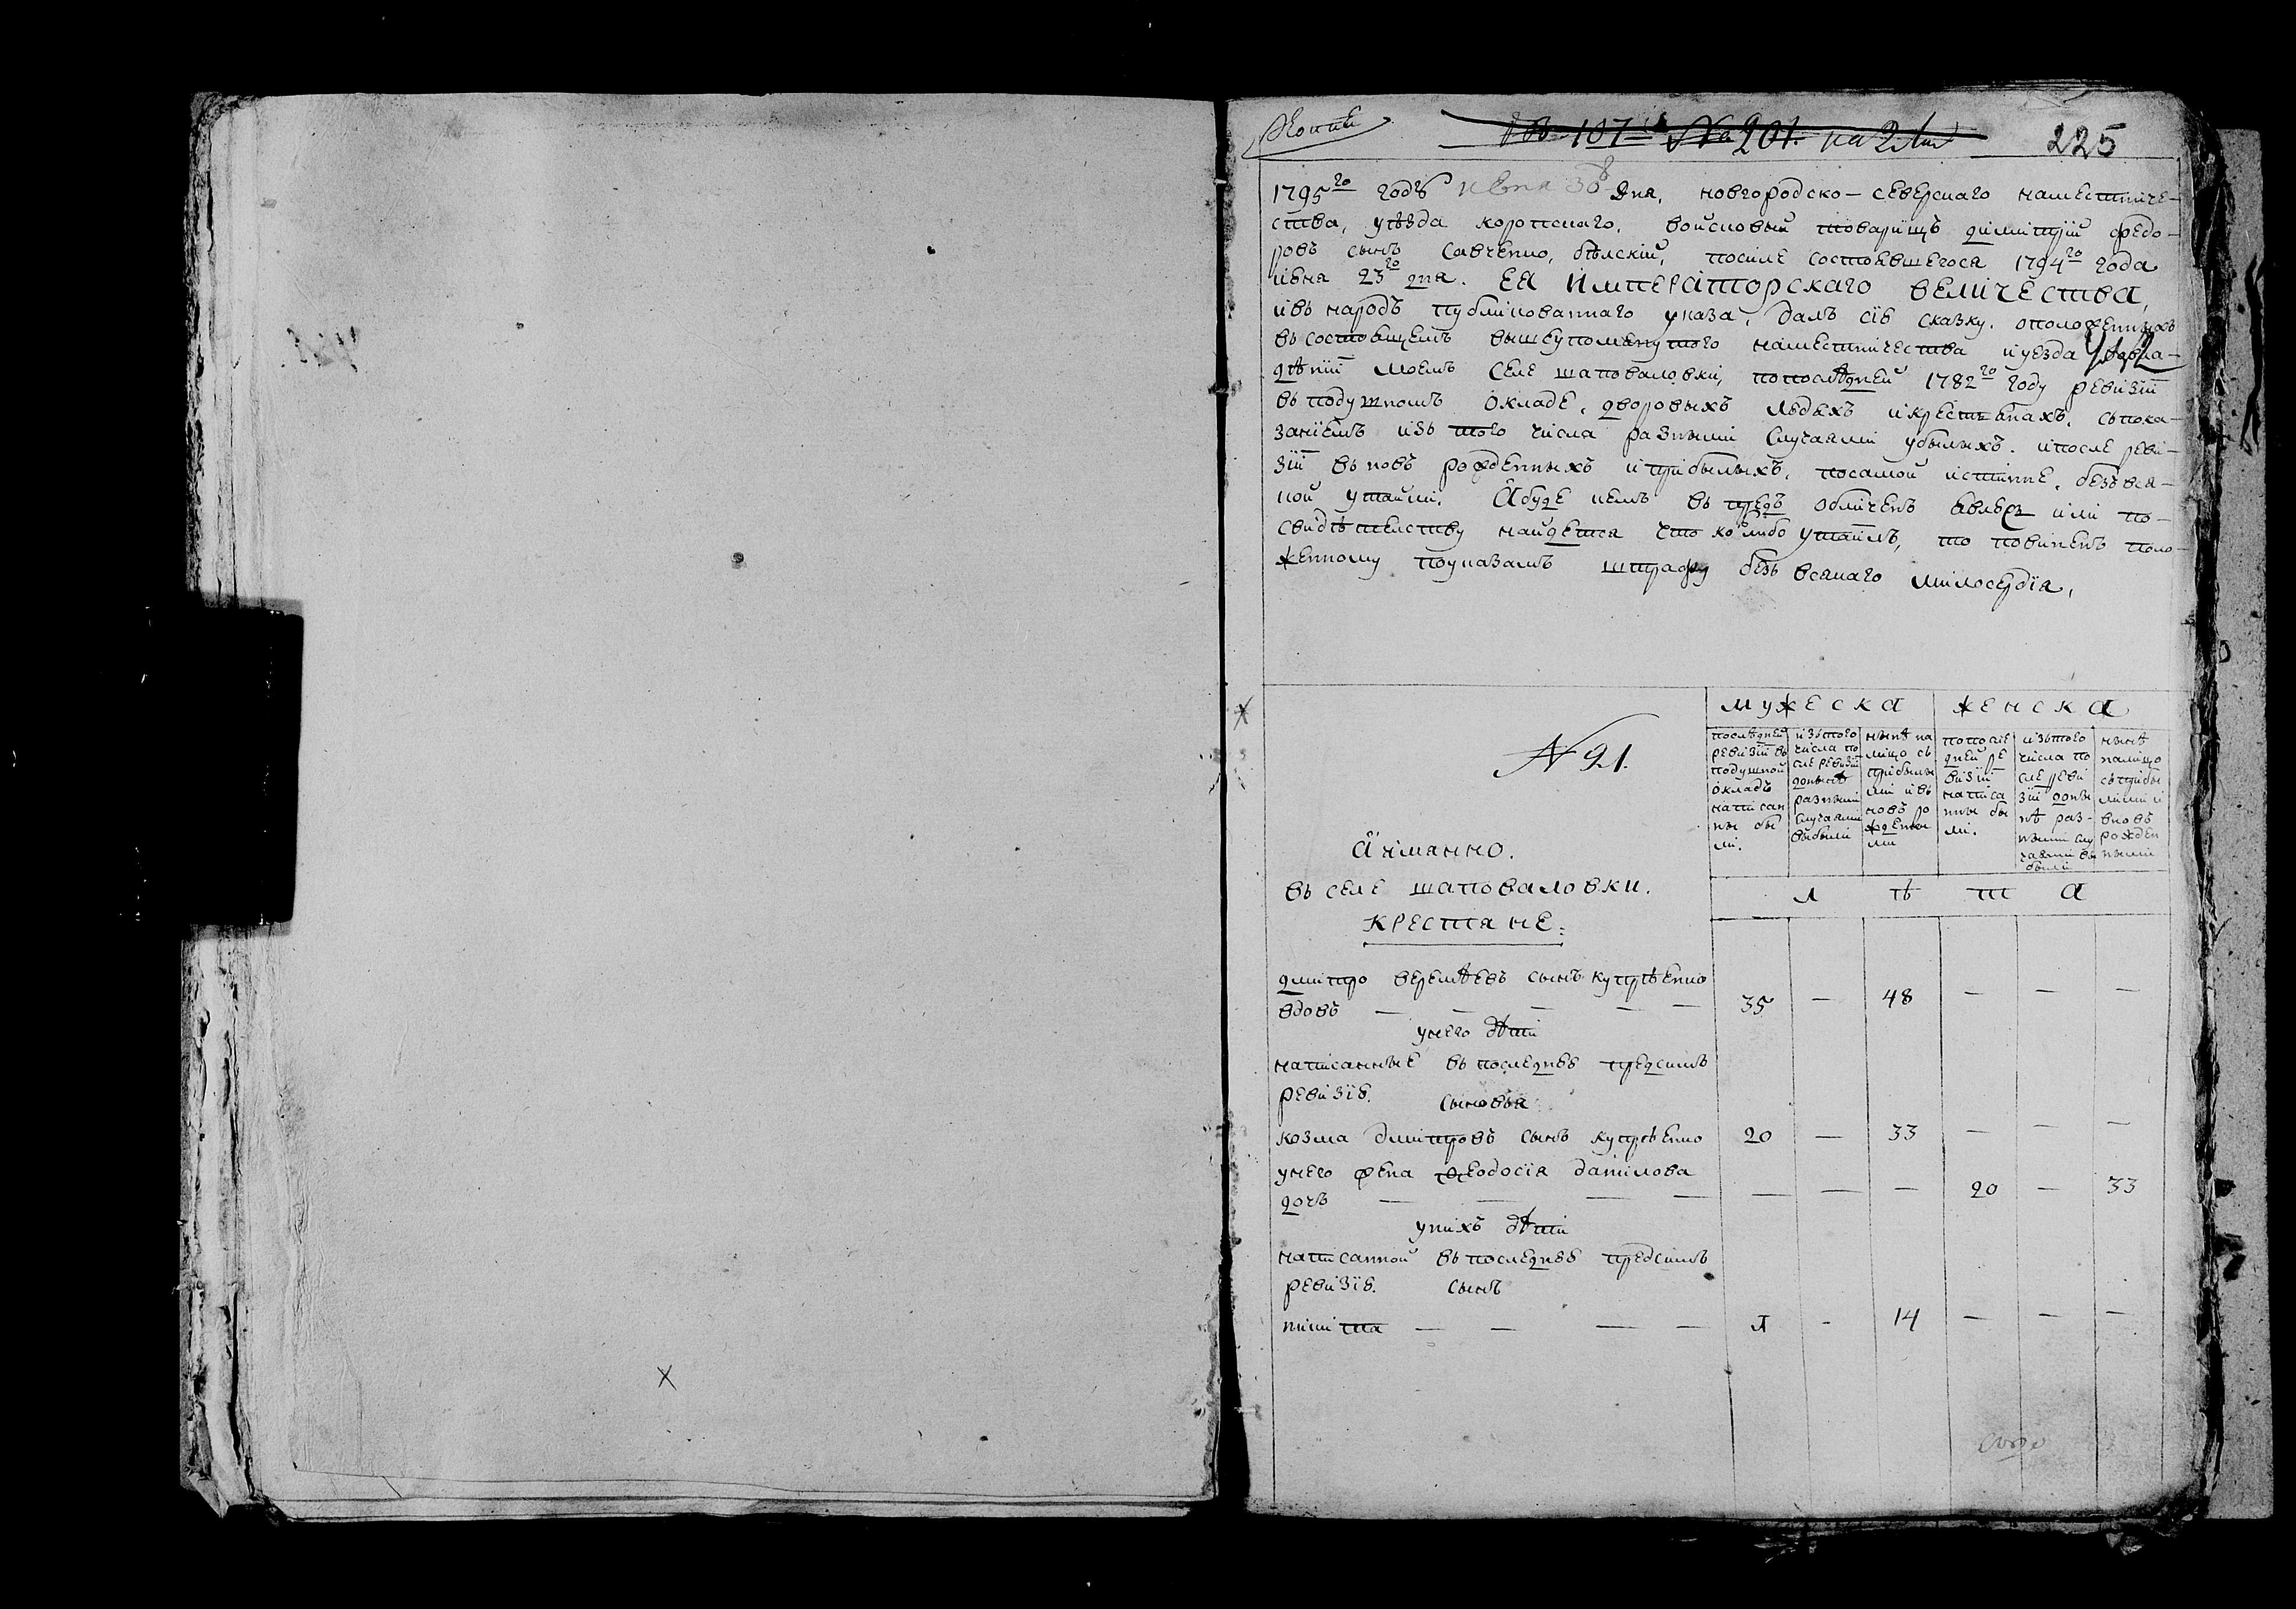 Копия
225
1795го годъ июня 30 дня, новгородско-северскаго намѣстниче-
ства, уѣзда коропскаго, войсковый товарищъ димитрій федо-
ровъ сынъ Савченко, бѣлскій, посиле состоявшегося 1794го года
июня 23го дня. ЕЯ ИМПЕРАТОРСКАГО ВЕЛИЧЕСТВА,
ивъ народъ публикованнаго указа, далъ сію сказку. оположенныхъ
въ состоящемъ вышеупомянутого наместничества иуезда вовла-
дѣніи моемъ Селе шаповаловки, попослѣдней 1782го году ревизіи
въ подушномъ окладе, дворовыхъ людяхъ икрестьянахъ, съ пока-
заніемъ изъ того числа разными случаями убылыхъ. ипосле реви-
зіи въ новъ рожденныхъ иприбылыхъ, посамой истинне, безъ вся-
кой утайки. Абуде кемъ въ предъ обличенъ явлюсь или по-
свидѣтелству найдется что колибо утаилъ, то повиненъ поло-
женному поуказамъ штрафу безъ всякаго милосердія,
МУЖЕСКА ЖЕНСКА
послѣдней ревизіи въ подушной окладъ написаны были. изътого числа после ревизіи донынѣ разными случаями выбыли нынѣ налицо съ прибылыми ивъ новъ рожденными попоследней ревизіи написаны были. изътого числа после ревизіи донынѣ разными случаями выбыли нынѣ налицо съприбылыми и вновъ рожденными
N 21.
А имянно.
въ селе шаповаловки.
Л Ѣ Т А
КРЕСТЯНЕ:
дмитро веремѣевъ сынъ купрѣенко
вдовъ — — — — — 35 — 48 — — —
унего дѣти
написанные въ последнею предсимъ
ревизію. Сыновья
козма дмитровъ сынъ купрѣенко 20 — 33 — — —
унего жена феодосія данилова
дочь — — — — — — — 20 — 33
унихъ дѣти
написанной въ последнею предсимъ
ревизію. Сынъ
никита — — — — 1 - 14 — — —